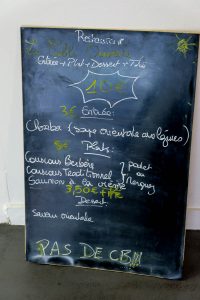 Restaurant
Entrée + Plat + Dessert + Thé
10€
3€ Entrée:
Chorba (soupe orientale aux légumes)
8€ Plats:
Couscous Berbère
Couscous Traditionnel } poulet ou Merguez
Saumon à la crème
3,50€
Dessert
Saveur orientale
PAS DE CB!!!